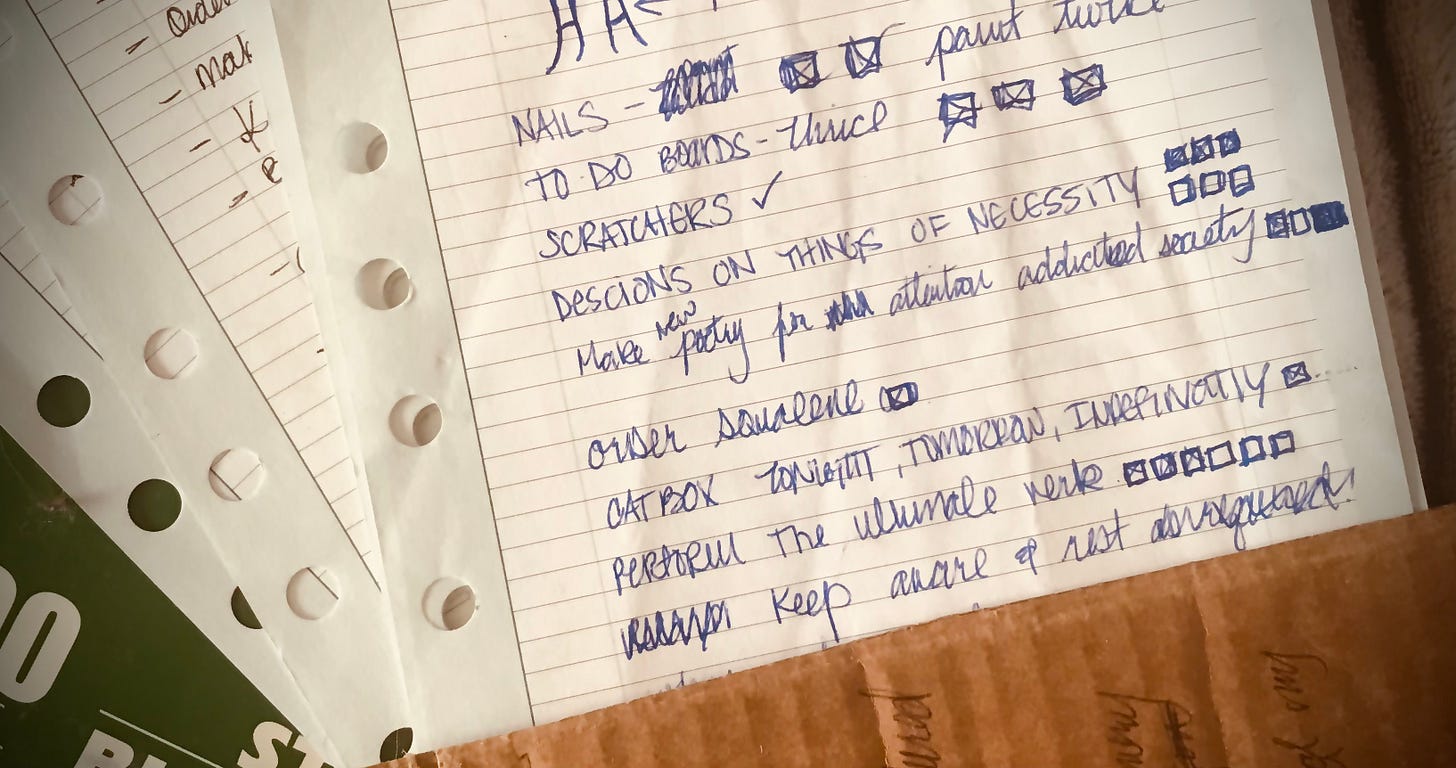 - Order
- Mak
- K
HA
NAILS - paint twice
TO DO BOARDS - thrice
SCRATCHERS ✓
DESCIONS ON THINGS OF NECESSITY
Make new poetry for attention addicted society
order squalene
CAT BOX TONIGHT, TOMORROW,
PERFORM The ultimate
Keep aware & rest